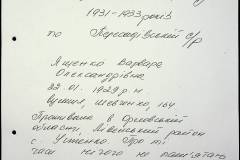 1931-1933 років
по Пересадівській с/р
Ященко Варвара
Олександрівна
22.01.1929 р.н
вулиця, Шевченко, 164
Проживала в Орловській
області, район
с. Устенко. Про ті
часи нічого не пам'ятає